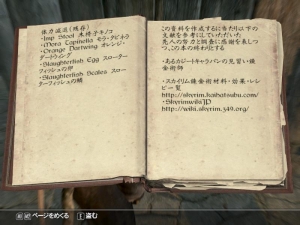 体力減退(残存)
・Imp Stool 木椅子キノコ
・Mora Tapinella モラ・タピネラ
・Orange Dartwing オレンジ・
ダートウィング
・Slaughterfish Egg スローター
フィッシュの卵
・Slaughterfish Scales スロー
ターフィッシュの鱗
この資料を作成するに当たり以下の
文献を参考にしていただいた
先人への努力と調査に感謝を表しつ
つ、この本の終わりとする
・あるカジートキャラバンの見習い錬
金術師
・スカイリム錬金術材料・効果・レシ
ピ一覧
http://skyrim.kabatsubu.com/
・SkyrimwikiJP
http://wiki.skyrim.z49.org/
ページをめくる
盗む